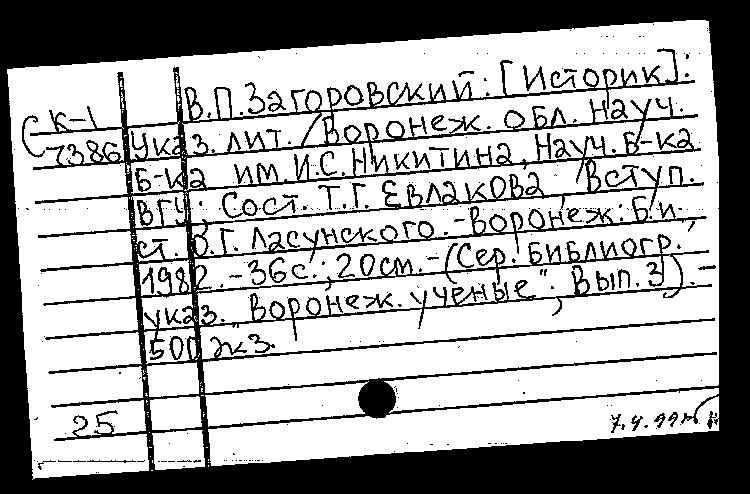 В.П.Загоровский: [Историк]:
СК-1 Указ. лит. / Воронеж. обл. науч.
7386 б-ка им. И.С. Никитина, Науч. б-ка
ВГУ; Сост. Т.Г. Евлакова; Вступ.
ст. О.Г. Ласунского. - Воронеж: Б.и.,
1982. - 36 с.; 20 см. - (Сер. библиогр.
указ. "Воронеж. ученые"; Вып. 3). -
500 экз.
25
7.4.99